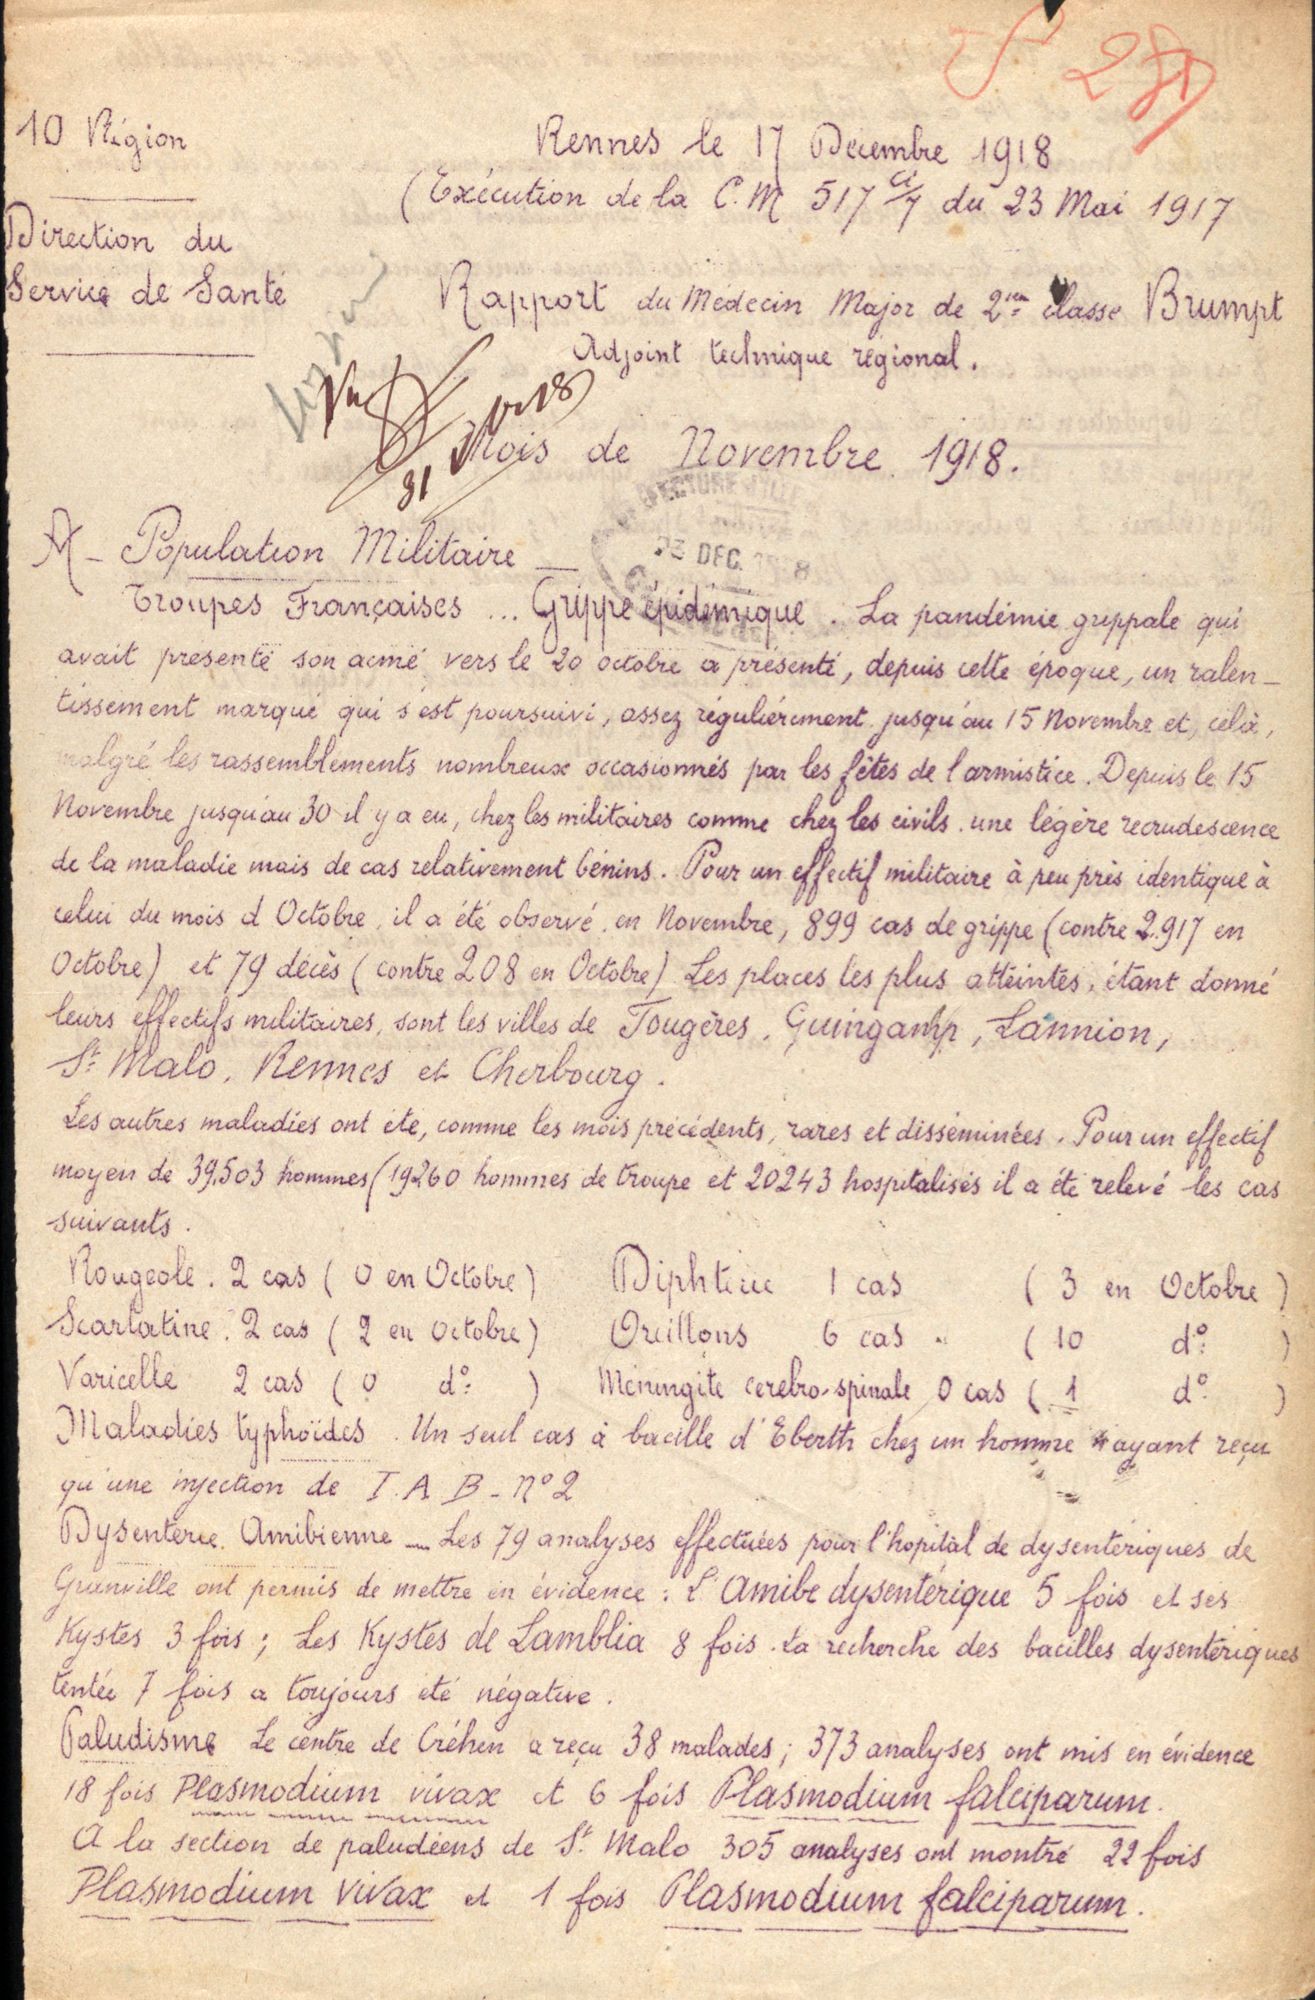 10 Région
Rennes le 17 Décembre 1918
(Exécution de la C.M 517 Ci/7 du 23 Mai 1917
Direction du
Service de Santé
Rapport du Médecin Major de 2ème classe Brumpt
Adjoint technique régional.
Vu
Mois de Novembre 1918.
23 DEC. 1918
A - Population Militaire -
Troupes Françaises ... Grippe épidémique. La pandémie grippale qui
avait présenté son acmé vers le 20 octobre a présenté, depuis cette époque, un ralen-
tissement marqué qui s'est poursuivi, assez régulièrement jusqu'au 15 Novembre et, celà,
malgré les rassemblements nombreux occasionnés par les fêtes de l'armistice. Depuis le 15
Novembre jusqu'au 30 il y a eu, chez les militaires comme chez les civils une légère recrudescence
de la maladie mais de cas relativement bénins. Pour un effectif militaire à peu près identique à
celui du mois d'Octobre, il a été observé, en Novembre, 899 cas de grippe (contre 2.917 en
Octobre) et 79 décès (contre 208 en Octobre) Les places les plus atteintes, étant donné
leurs effectifs militaires, sont les villes de Fougères, Guingamp, Lannion,
St Malo, Rennes et Cherbourg.
Les autres maladies ont été, comme les mois précédents, rares et disséminées. Pour un effectif
moyen de 39.503 hommes (19260 hommes de troupe et 20243 hospitalisés il a été relevé les cas
suivants.
Rougeole. 2 cas (0 en Octobre) Diphterie 1 cas (3 en Octobre)
Scarlatine. 2 cas (2 en Octobre) Oreillons 6 cas (10 d°)
Varicelle 2 cas (0 d°) Méningite cerebro-spinale 0 cas (1 d°)
Maladies typhoïdes. Un seul cas à bacille d'Eberth chez un homme n'ayant reçu
qu'une injection de T.A.B - N° 2
Dysenterie Amibienne - Les 79 analyses effectuées pour l'hopital de dysentériques de
Granville ont permis de mettre en évidence : L'Amibe dysentérique 5 fois et ses
Kystes 3 fois ; Les Kystes de Lamblia 8 fois. La recherche des bacilles dysentériques
tentée 7 fois a toujours été négative.
Paludisme Le centre de Créhen a reçu 38 malades ; 373 analyses ont mis en évidence
18 fois Plasmodium vivax et 6 fois Plasmodium falciparum.
A la section de paludéens de St Malo 305 analyses ont montré 22 fois
Plasmodium vivax et 1 fois Plasmodium falciparum.